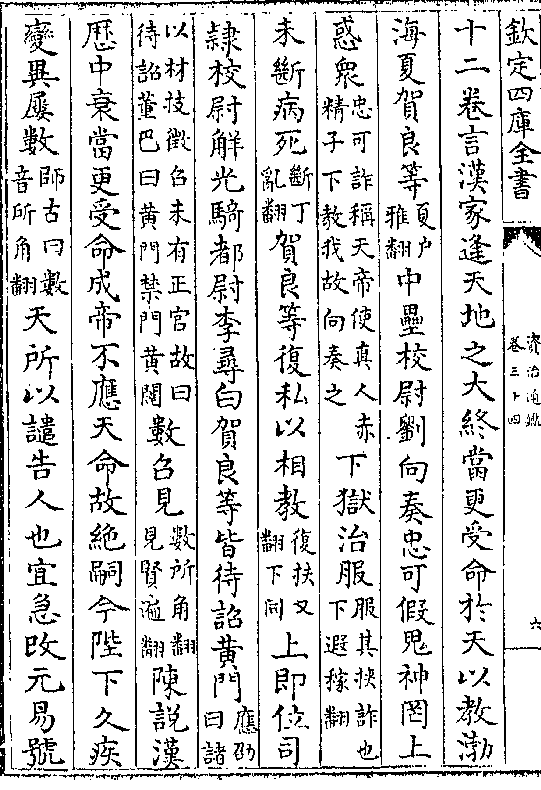 欽定四庫全書
資治通鑑
卷三十四
六
十二卷言漢家逢天地之大終當更受命於天以教渤
海夏賀良等夏戶雅翻中壘校尉劉向奏忠可假鬼神罔上
惑衆忠可詐稱天帝使真人赤精子下教我故向奏之下獄治服服其挾詐也下遐稼翻
未斷病死斷丁亂翻賀良等復私以相教復扶又翻下同上即位司
隸校尉解光騎都尉李尋白賀良等皆待詔黃門應劭曰諸
以材技徵召未有正官故曰待詔董巴曰黃門禁門黃闥數召見數所角翻見賢遍翻陳說漢
歷中衰當更受命成帝不應天命故絶嗣今陛下久疾
變異屢數師古曰數音所角翻天所以譴告人也宜急改元易號